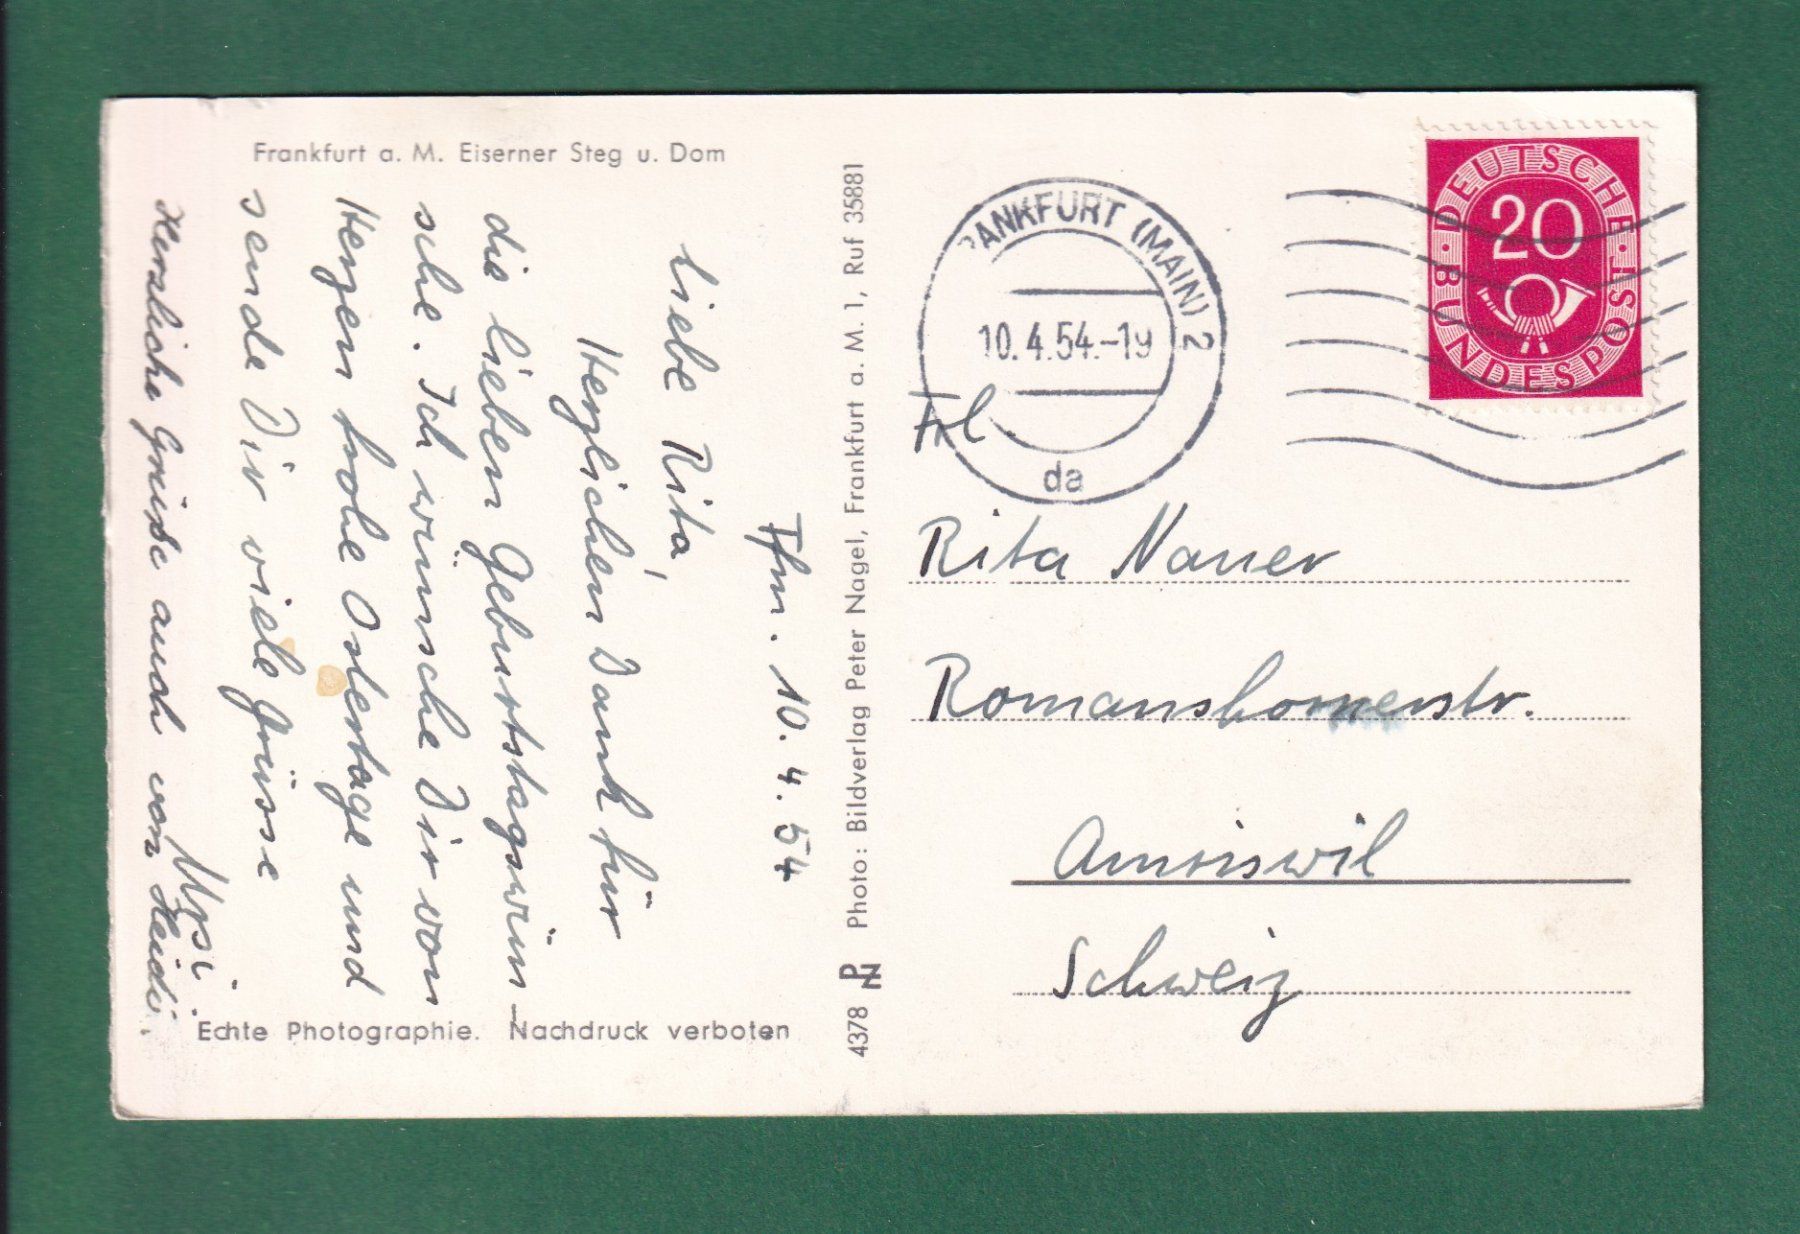 Frankfurt a. M. Eiserner Steg u. Dom
Ffm. 10. 4. 54
Liebe Rita,
Herzlichen Dank für
die lieben Geburtstagswün-
sche. Ich wünsche Dir von
Herzen frohe Ostertage und
sende Dir viele Grüsse
Ursi.
Herzliche Grüße auch von Heidi.
Echte Photographie. Nachdruck verboten
4378 PN Photo: Bildverlag Peter Nagel, Frankfurt a. M. 1, Ruf 35881
ANKFURT (MAIN) 2
10.4.54.-19
da
DEUTSCHE BUNDESPOST
20
Frl
Rita Nauer
Romanshornerstr.
Amriswil
Schweiz